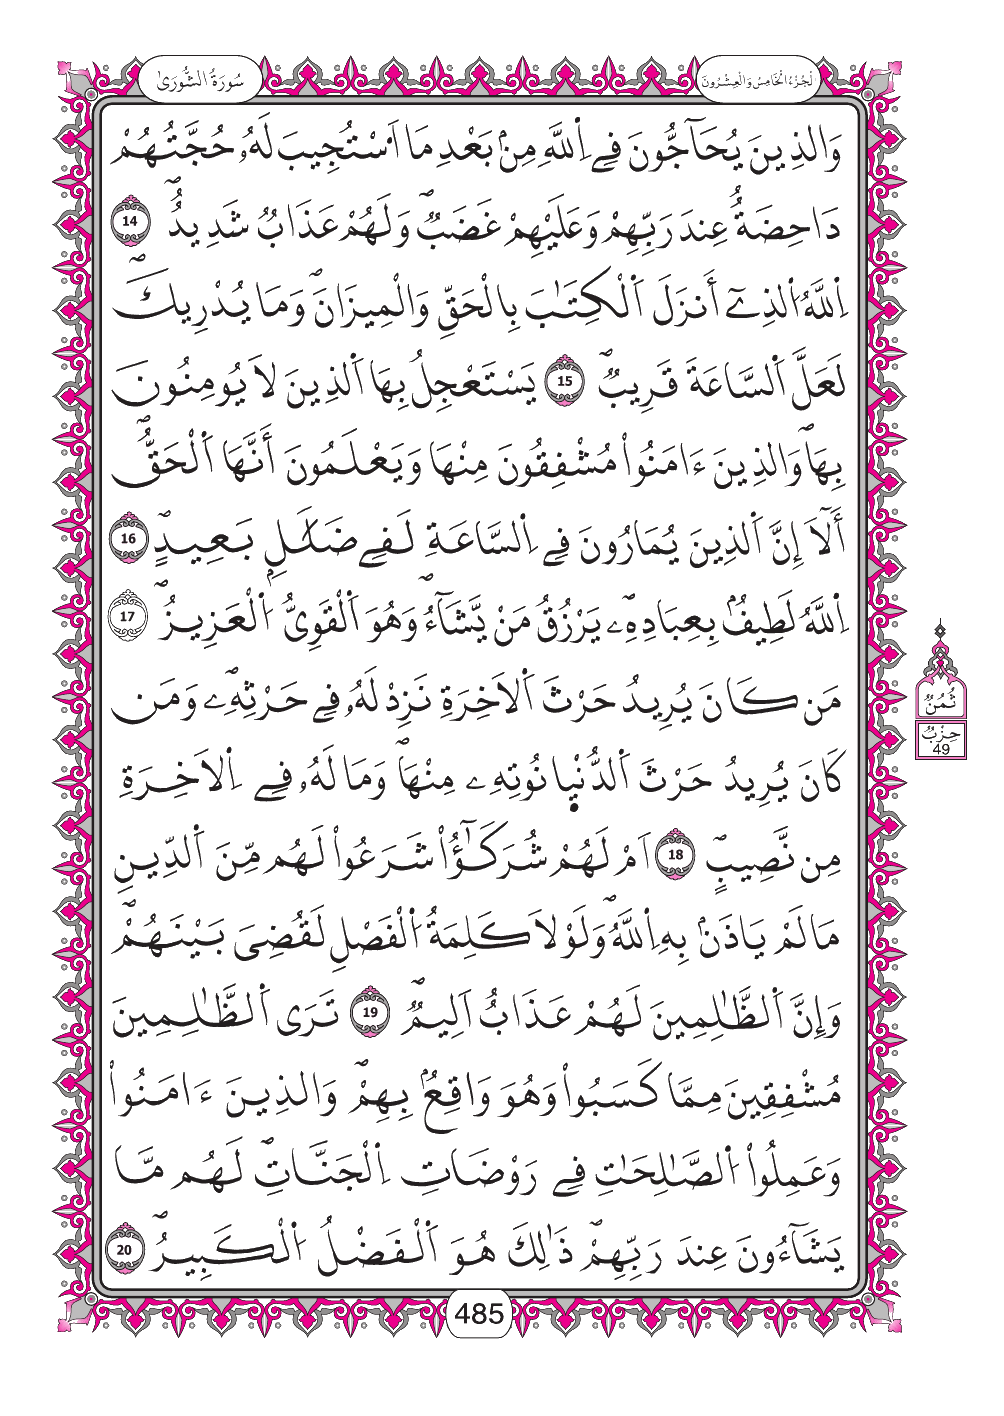 سُورَةُ الشُّورَىٰ
اَلْجُزْءُ الْخَامِسُ وَالْعِشْرُونَ
وَالذِينَ يُحَآجُّونَ فِے اِ۬للَّهِ مِنۢ بَعْدِ مَا اَ۟سْتُجِيبَ لَهُۥ حُجَّتُهُمْ
دَاحِضَةٌ عِندَ رَبِّهِمْ وَعَلَيْهِمْ غَضَبٞ وَلَهُمْ عَذَابٞ شَدِيدٌۖ 14
اِ۬للَّهُ اُ۬لذِےٓ أَنزَلَ اَ۬لْكِتَٰبَ بِالْحَقِّ وَالْمِيزَانَۖ وَمَا يُدْرِيكَ
لَعَلَّ اَ۬لسَّاعَةَ قَرِيبٞۖ 15 يَسْتَعْجِلُ بِهَا اَ۬لذِينَ لَا يُومِنُونَ
بِهَاۖ وَالذِينَ ءَامَنُواْ مُشْفِقُونَ مِنْهَا وَيَعْلَمُونَ أَنَّهَا اَ۬لْحَقُّۖ
أَلَآ إِنَّ اَ۬لذِينَ يُمَارُونَ فِے اِ۬لسَّاعَةِ لَفِے ضَلَٰلِۢ بَعِيدٍۖ 16
اِ۬للَّهُ لَطِيفُۢ بِعِبَادِهِۦۖ يَرْزُقُ مَنْ يَّشَآءُۖ وَهُوَ اَ۬لْقَوِيُّ اُ۬لْعَزِيزُۖ 17
مَن كَانَ يُرِيدُ حَرْثَ اَ۬لَاخِرَةِ نَزِدْ لَهُۥ فِے حَرْثِهِۦۖ وَمَن
كَانَ يُرِيدُ حَرْثَ اَ۬لدُّنْيِا نُوتِهِۦ مِنْهَاۖ وَمَا لَهُۥ فِے اِ۬لَاخِرَةِ
مِن نَّصِيبٍۖ 18 اَمْ لَهُمْ شُرَكَٰٓؤُاْ شَرَعُواْ لَهُم مِّنَ اَ۬لدِّينِ
مَا لَمْ يَاذَنۢ بِهِ اِ۬للَّهُۖ وَلَوْلَا كَلِمَةُ اُ۬لْفَصْلِ لَقُضِىَ بَيْنَهُمْۖ
وَإِنَّ اَ۬لظَّٰلِمِينَ لَهُمْ عَذَابٌ اَلِيمٞۖ 19 تَرَى اَ۬لظَّٰلِمِينَ
مُشْفِقِينَ مِمَّا كَسَبُواْ وَهُوَ وَاقِعُۢ بِهِمْۖ وَالذِينَ ءَامَنُواْ
وَعَمِلُواْ اُ۬لصَّٰلِحَٰتِ فِے رَوْضَاتِ اِ۬لْجَنَّاتِۖ لَهُم مَّا
يَشَآءُونَ عِندَ رَبِّهِمْۖ ذَٰلِكَ هُوَ اَ۬لْفَضْلُ اُ۬لْكَبِيرُۖ 20
ثُمُنٌ
حِزْبٌ
49
485